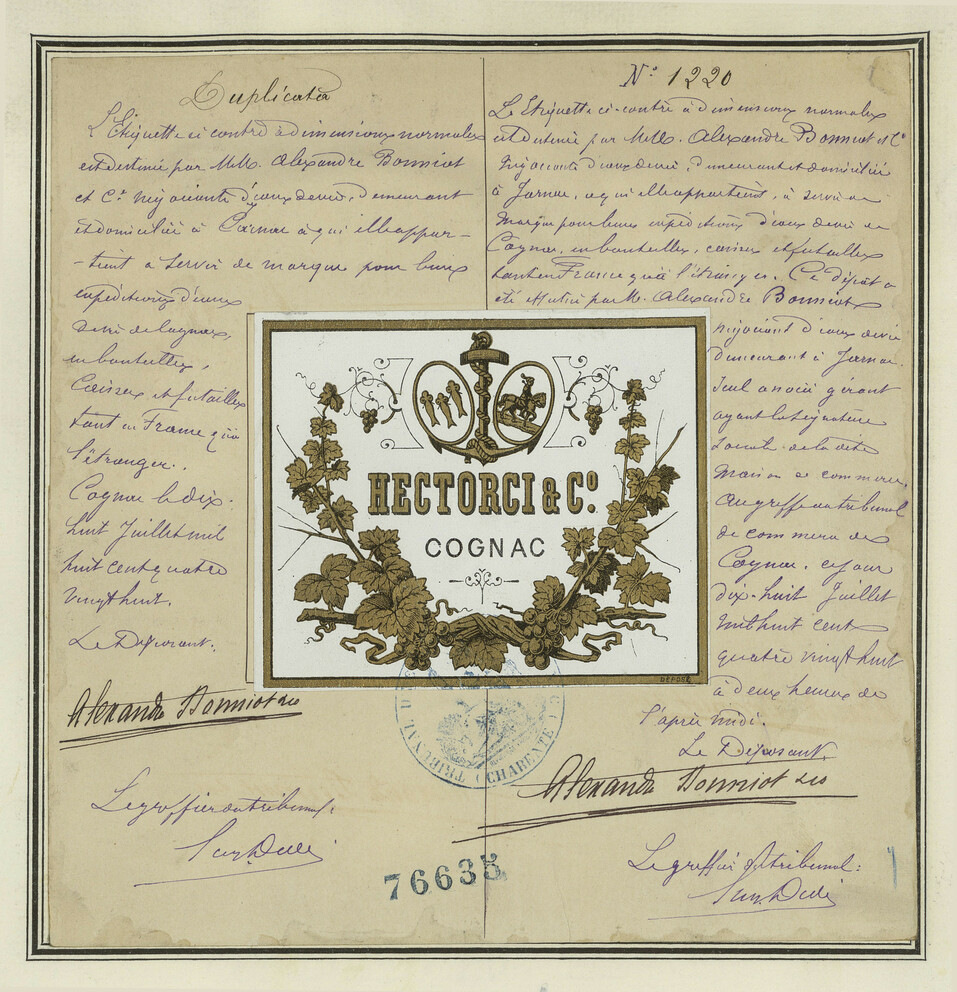 Duplicata
L'Etiquette ci contre à dimensions normales
est destinée par M.M. Alexandre Bonniot
et Cie négociants d'eaux de vie, demeurant
et domiciliés à Jarnac à qui elle appar-
-tient a servir de marque pour leurs
expéditions d'eaux
de vie de Cognac,
en bouteilles,
Caisses et futailles
tant en France qu'à
l'étranger.
Cognac le dix-
huit Juillet mil
huit cent quatre
vingt huit.
Le Déposant.
Alexandre Bonniot & Co
Le greffier du tribunal:
N° 1220
L'Etiquette ci-contre à dimensions normales
est destinée par M.M. Alexandre Bonniot & Co
négociants d'eaux de vie, demeurant et domiciliés
à Jarnac, à qui elle appartient, à servir de
marque pour leurs expéditions d'eaux de vie de
Cognac, en bouteilles, caisses et futailles
tant en France qu'à l'étranger. Ce dépôt a
été effectué par M. Alexandre Bonniot
négociant d'eaux de vie
demeurant à Jarnac
Seul associé gérant
ayant la signature
sociale de la dite
maison de commerce,
au greffe du tribunal
de commerce de
Cognac, ce jour
dix-huit Juillet
mil huit cent
quatre vingt huit
à deux heures de
l'après midi.
Le Déposant,
Alexandre Bonniot & Co
Le greffier du tribunal:
HECTORCI & Co.
COGNAC
DÉPOSÉ
TRIBUNAL DE
CHARENTE
76635